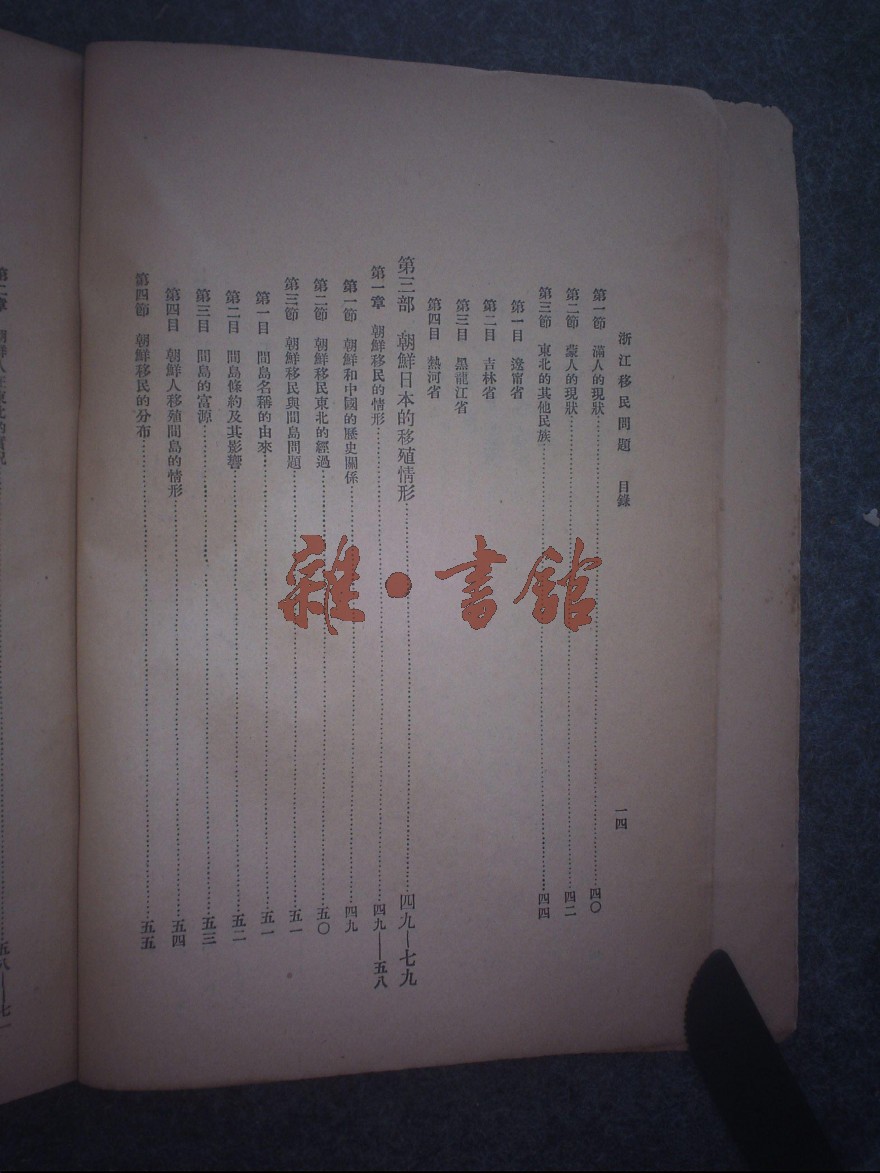 浙江移民問題 目錄 一四
第一節 滿人的現狀 四〇
第二節 蒙人的現狀 四二
第三節 東北的其他民族 四四
第一目 遼甯省
第二目 吉林省
第三目 黑龍江省
第四目 熱河省
第三部 朝鮮日本的移殖情形 四九—七九
第一章 朝鮮移民的情形 四九—五八
第一節 朝鮮和中國的歷史關係 四九
第二節 朝鮮移民東北的經過 五〇
第三節 朝鮮移民與間島問題 五一
第一目 間島名稱的由來 五一
第二目 間島條約及其影響 五二
第三目 間島的富源 五三
第四目 朝鮮人移殖間島的情形 五四
第四節 朝鮮移民的分布 五五
第二章 朝鮮人在東北的實況 五八—七一
雜·書館